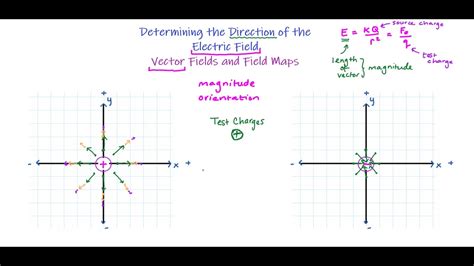 Determining the Direction of the
Electric Field
Vector Fields and Field Maps
magnitude
orientation
Test Charges
+
E = KQ / r² = Fe / q
source charge
test charge
length of vector } magnitude
y
+
-
x
+
+
-
y
+
-
x
+
+
-